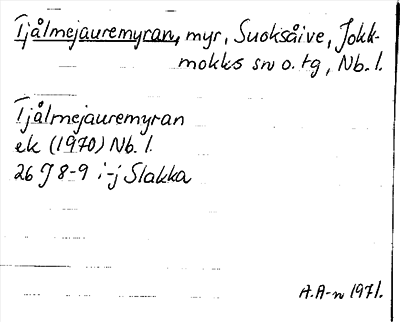 Tjålmejauremyran, myr, Suoksåive, Jokk-
mokks sn o. tg, Nb. l.
Tjålmejauremyran
ek (1970) Nb. l.
26 J 8-9 i-j Slakka
A. A-n 1971.